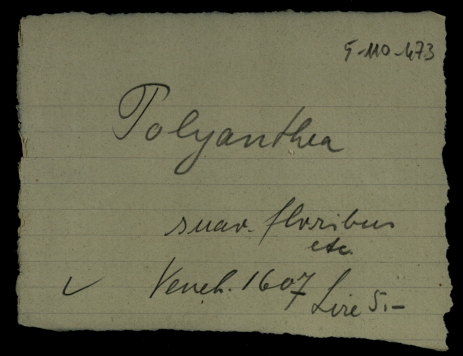 5-110-473
Polyanthea
suav. floribus
etc.
✓ Venet. 1607
Lire 5.-